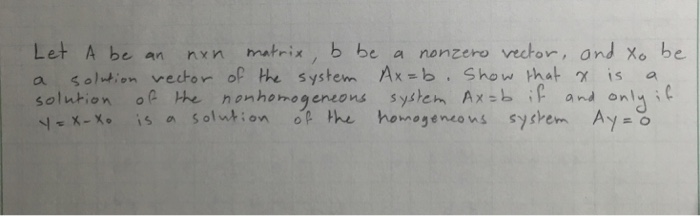 Let A be an nxn matrix, b be a nonzero vector, and x₀ be
a solution vector of the system Ax=b. Show that x is a
solution of the nonhomogeneous system Ax=b if and only if
y=x-x₀ is a solution of the homogeneous system Ay=0